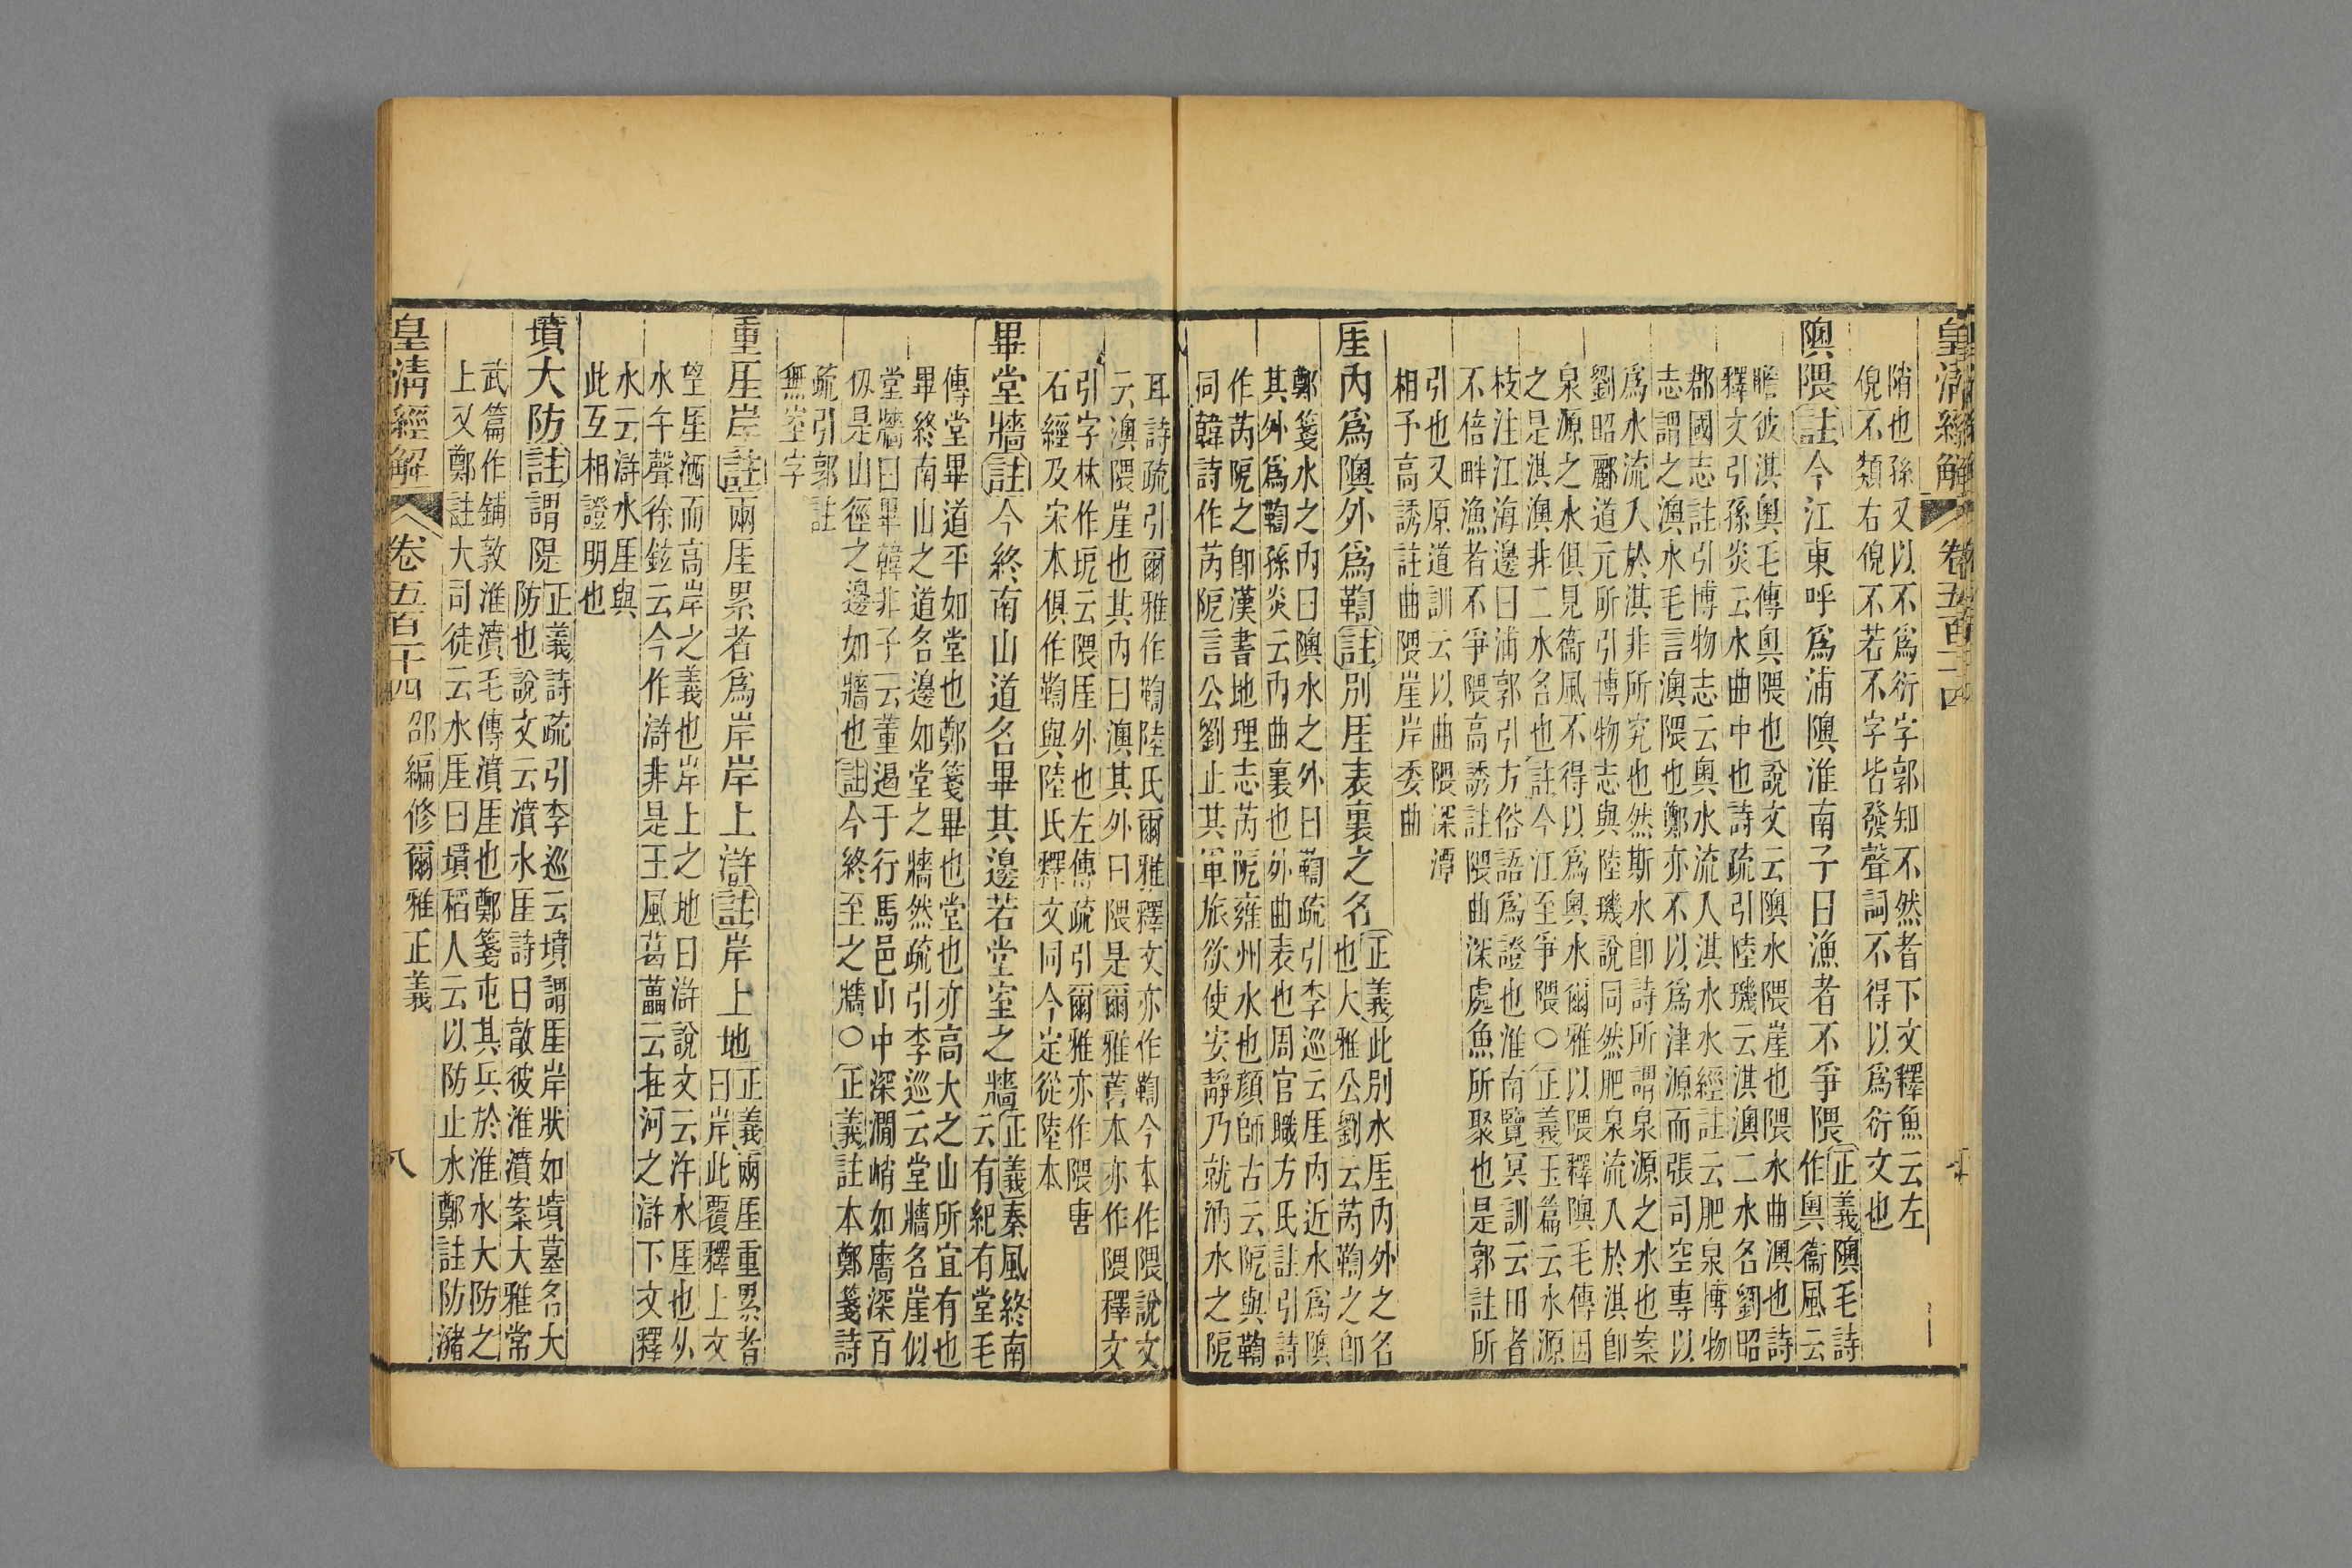 皇清經解 卷五百十四
陗也孫又以不爲衍字郭知不然者下文釋魚云左
倪不類右倪不若不字皆發聲詞不得以爲衍文也
隩隈註今江東呼爲浦隩淮南子曰漁者不爭隈正義隩毛詩
作奧衞風云
瞻彼淇奧毛傳奧隈也說文云隩水隈崖也隈水曲澳也詩
釋文引孫炎云水曲中也詩疏引陸璣云淇澳二水名劉昭
郡國志註引博物志云奧水流入淇水水經註云肥泉博物
志謂之澳水毛言澳隈也鄭亦不以爲津源而張司空專以
爲水流入於淇非所究也然斯水卽詩所謂泉源之水也案
劉昭酈道元所引博物志與陸璣說同然肥泉流入於淇卽
泉源之水俱見衞風不得以爲奧水爾雅以隈釋隩毛傳因
之是淇澳非二水名也註今江至爭隈〇正義玉篇云水源
枝注江海邊曰浦郭引方俗語爲證也淮南覽冥訓云田者
不倍畔漁者不爭隈高誘註隈曲深處魚所聚也是郭註所
引也又原道訓云以曲隈深潭
相予高誘註曲隈崖岸委曲
厓內爲隩外爲鞫註別厓表裏之名正義此別水厓內外之名
也大雅公劉云芮鞫之卽
鄭箋水之內曰隩水之外曰鞫疏引李巡云厓內近水爲隩
其外爲鞫孫炎云內曲裏也外曲表也周官職方氏註引詩
作芮阮之卽漢書地理志芮阮雍州水也顏師古云阮與鞫
同韓詩作芮阮言公劉止其軍旅欲使安靜乃就汭水之阮
耳詩疏引爾雅作鞫陸氏爾雅釋文亦作鞫今本作隈說文
云澳隈崖也其內曰澳其外曰隈是爾雅舊本亦作隈釋文
引字林作坭云隈厓外也左傳疏引爾雅亦作隈唐
石經及宋本俱作鞫與陸氏釋文同今定從陸本
畢堂牆註今終南山道名畢其邊若堂室之牆正義秦風終南
云有紀有堂毛
傳堂畢道平如堂也鄭箋畢也堂也亦高大之山所宜有也
畢終南山之道名邊如堂之牆然疏引李巡云堂牆名崖似
堂牆曰畢韓非子云董遏于行馬邑山中深澗峭如牆深百
仭是山徑之邊如牆也註今終至之牆〇正義註本鄭箋詩
疏引郭註
無室字
重厓岸註兩厓累者爲岸岸上滸註岸上地正義兩厓重累者
曰岸此覆釋上文
望厓洒而高岸之義也岸上之地曰滸說文云汻水厓也从
水午聲徐鉉云今作滸非是王風葛藟云在河之滸下文釋
水云滸水厓與
此互相證明也
墳大防註謂隄正義詩疏引李巡云墳謂厓岸狀如墳墓名大
防也說文云濆水厓詩曰敦彼淮濆案大雅常
武篇作鋪敦淮濆毛傳濆厓也鄭箋屯其兵於淮水大防之
上又鄭註大司徒云水厓曰墳稻人云以防止水鄭註防瀦
皇清經解 卷五百十四 邵編修爾雅正義 八